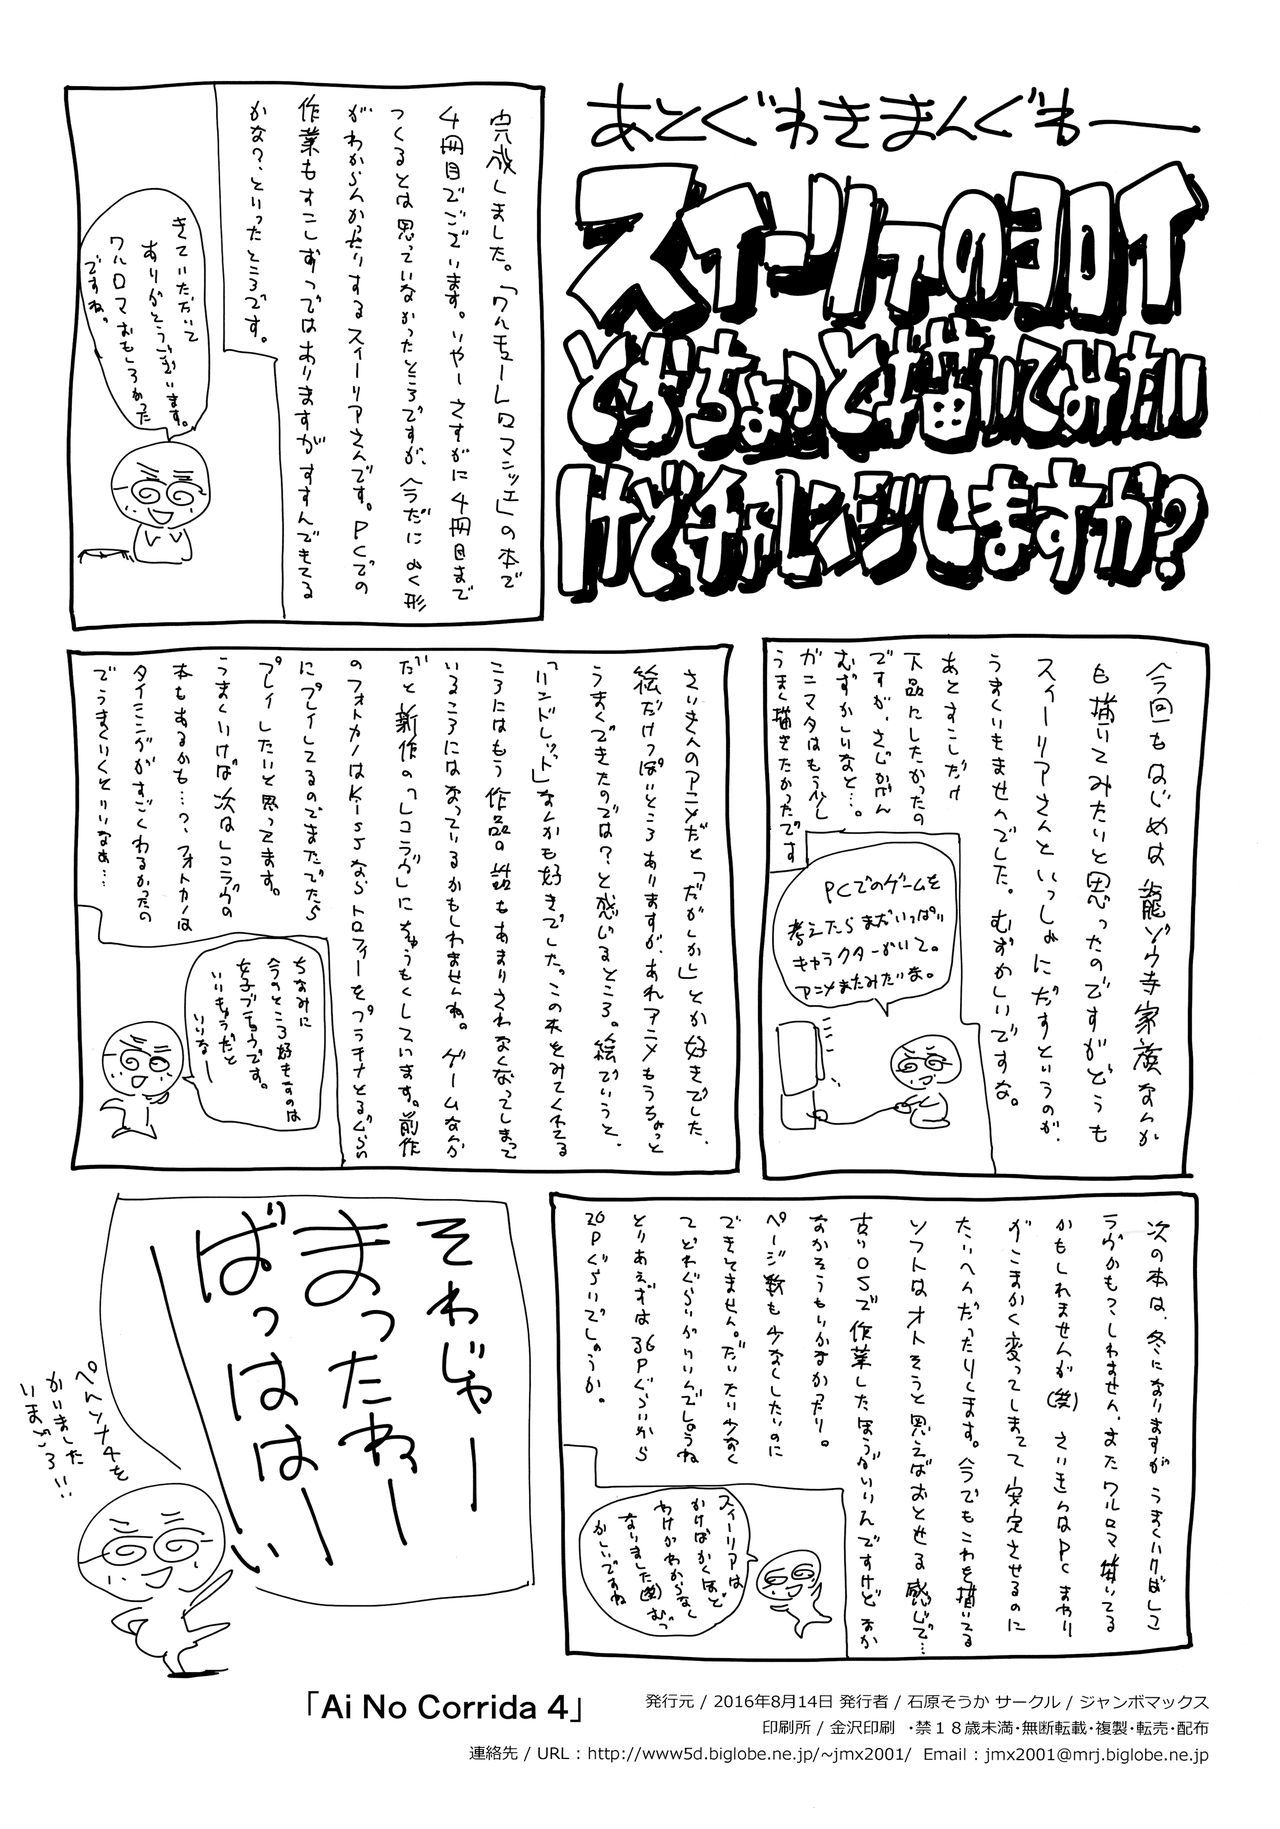 あとぐわきまんぐもー
スイーリアのヨロイ
とかちょっと描いてみたい
けどチャレンジしますか?
完成しました。「ワルキューレロマンツェ」の本で
4冊目でございます。いやーさすがに4冊目まで
つくるとは思っていなかったところですが、今だに よく形
がわからんかったりするスイーリアさんです。PCでの
作業もすこしずつではありますが すすんでもてる
かな?、といったところです。
きていただいて
ありがとうございます。
ワルロマおもしろかった
ですね。
今回もはじめは 龍ゾウ寺家族なんか
も描いてみたいと思ったのですがどうも
スィーリアさんといっしょにだすというのが、
うまくいきませんでした。むずかしいですな。
あとすこしだけ
下品にしたかったの
ですが、さじかげん
むずかしいなと…。
ガニマタはもう少し
うまく描きたかったです
PCでのゲームを
考えたらまだいっぱい
キャラクターがいて。
アニメまたみたいな。
さいきんのアニメだと「だがしかし」とか好きでした、
絵だけっぽいところありますが、あれアニメもうちょっと
うまくできたのでは?と感じるところ。絵でいうと、
「ハンドレッド」なんかも好きでした。この本をみてくれてる
ころにはもう作品の話もあまりされなくなってしまって
いるころにはなっているかもしれませんね。ゲームなんか
だと新作の「レコラヴ」にちゅうもくしています。前作
のフォトカノはKissならトロフィーをプラチナとるぐらい
にプレイしてるのでまたでたら
プレイしたいと思ってます。
うまくいけば次はレコラヴの
本もあるかも…?、フォトカノは
タイミングがすごくわるかったの
でうまくいくといいなぁ…
ちなみに
今のところ好きなのは
女子ブチョウです。
いいキョウだと
いいなー
次の本は、冬になりますが うまくいけばレコ
ラヴかもっ、しれません、またワルロマ描いてる
かもしれませんが(笑) さいきんはPCまわり
がこまかく変ってしまって安定させるのに
たいへんだったりします。今でもこれを描いてる
ソフトはオトそうと思えばおとせる感じで…
古いOSで作業したほうがいいんですけどなか
なかそうもいかなかったり。
ページ数も少なくしたいのに
できてません。だいたい少なく
てどれぐらいがいいんでしょうね
とりあえずは36Pぐらいから
20Pぐらいでしょうか。
スィーリアは
かけばかくほど
わけがわからなく
なりました(笑)むつ
かしいですね
それじゃー
まったねー
ばっははーい
ペンンナチを
かいました
いまごろ!!
「Ai No Corrida 4」
発行元 / 2016年8月14日 発行者 / 石原そうか サークル / ジャンボマックス
印刷所 / 金沢印刷 ・禁18歳未満・無断転載・複製・転売・配布
連絡先 / URL : http://www5d.biglobe.ne.jp/~jmx2001/ Email : jmx2001@mrj.biglobe.ne.jp